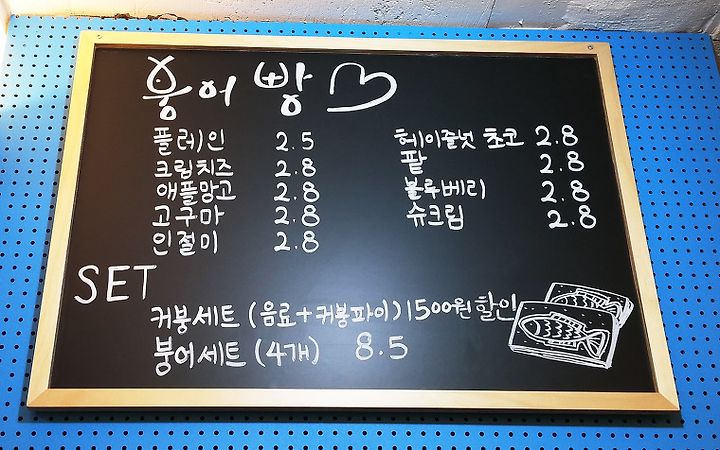 붕어빵
플레인 2.5
크림치즈 2.8
애플망고 2.8
고구마 2.8
인절미 2.8
헤이즐넛 초코 2.8
팥 2.8
블루베리 2.8
슈크림 2.8
SET
커붕세트 (음료+커붕파이) 1500원 할인
붕어세트 (4개) 8.5